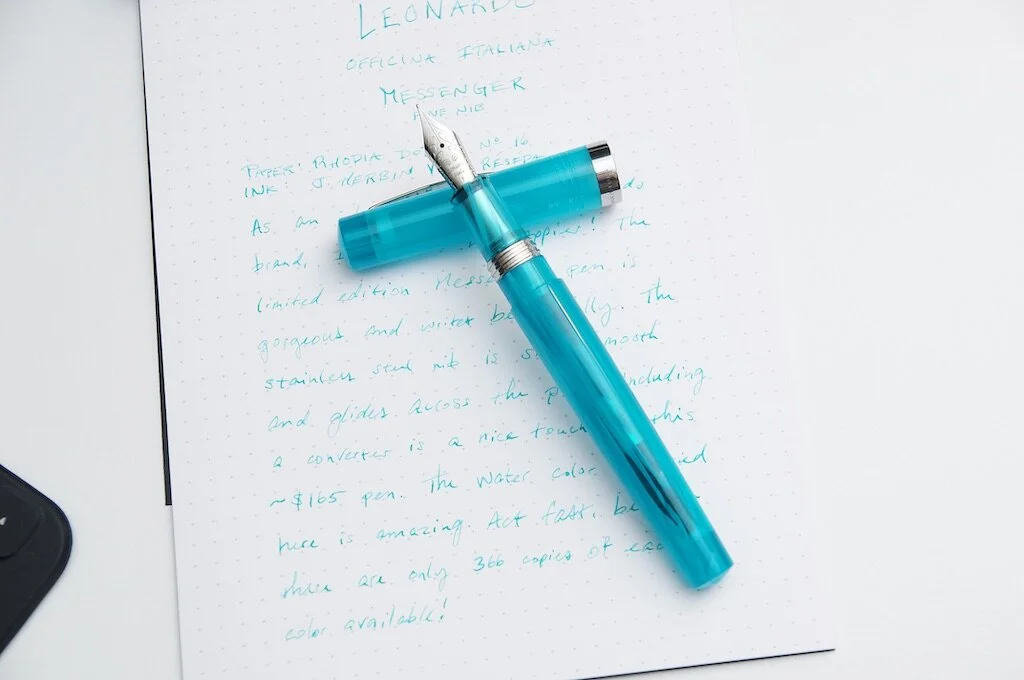 LEONARDO
OFFICINA ITALIANA
MESSENGER
FINE NIB
PAPER: RHODIA No 16
INK: J. HERBIN RÉSEDA
As an
brand, happier! The
limited edition pen is
gorgeous and writes The
stainless steel nib is smooth
and glides across the including
a converter is a nice touch this
~$165 pen. The Water color
here is amazing. Act fast,
there are only 366 copies of each
color available!